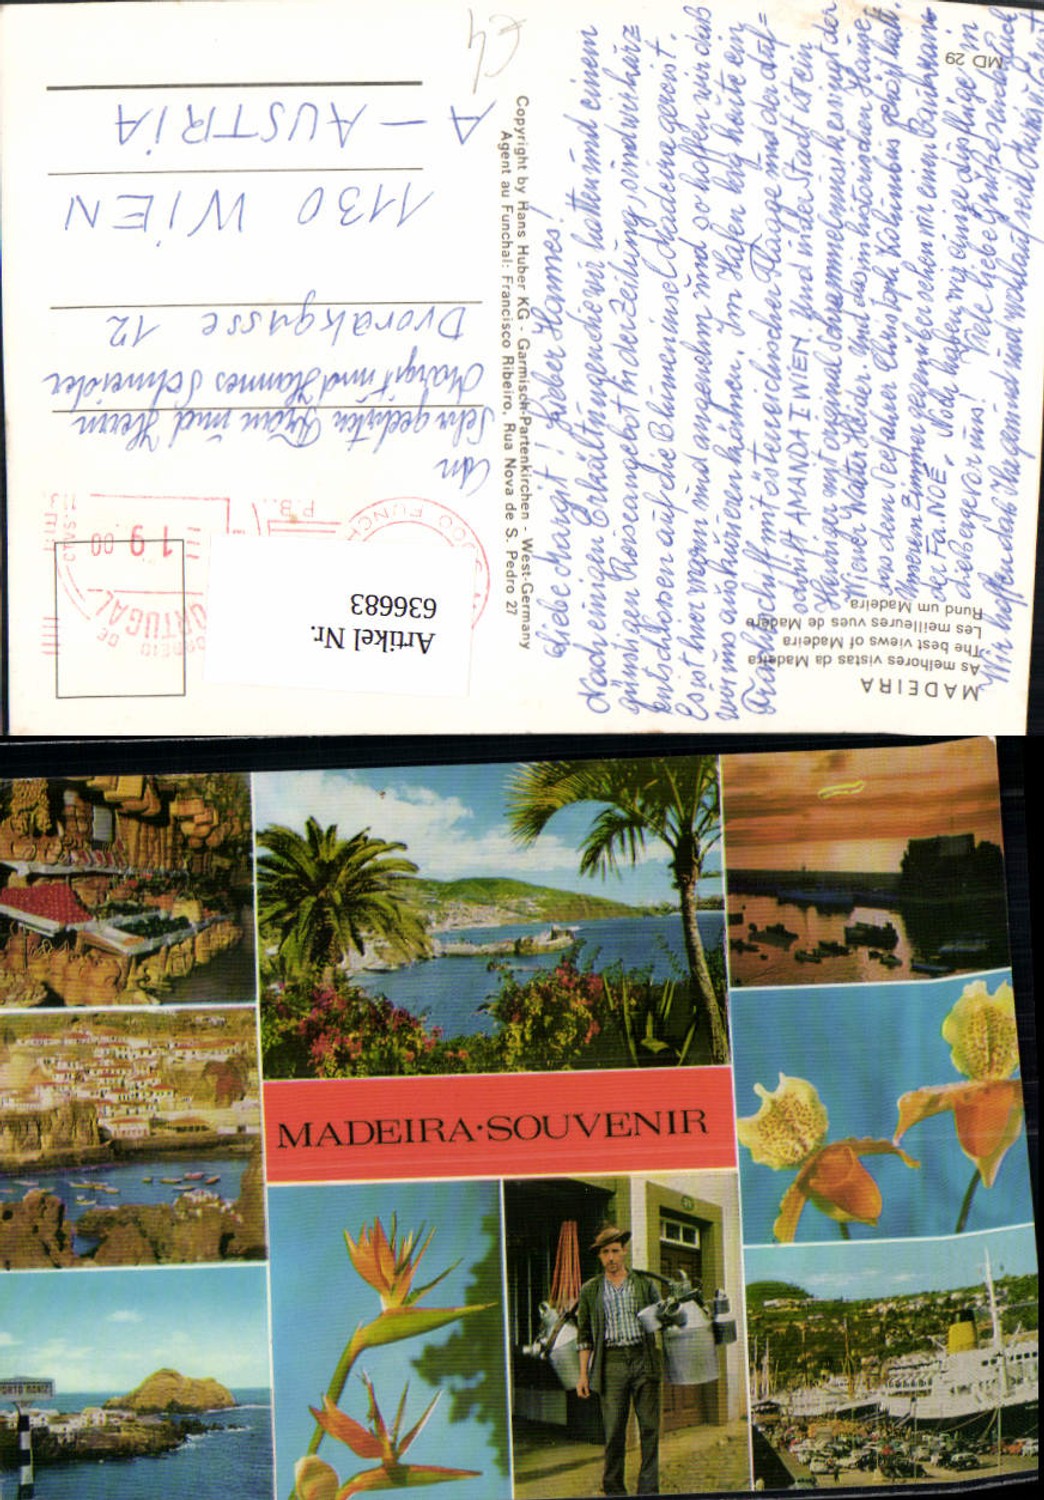 €4
MD 29
MADEIRA
As melhores vistas da Madeira
The best views of Madeira
Les meilleures vues de Madère
Rund um Madeira
Copyright by Hans Huber KG - Garmisch-Partenkirchen - West-Germany
Agent au Funchal: Francisco Ribeiro, Rua Nova de S. Pedro 27
Liebe Margit! Lieber Hannes!
Nach einigen Erkältungen die wir hatten und einem
günstigen Reiseangebot in der Zeitung, sind wir kurz
entschlossen auf die Blumeninsel Madeira gereist.
Es ist hier warm und angenehm und so hoffen wir daß
wir uns auskurieren können. Im Hafen lag heute ein
Frachtschiff mit österreichischer Flagge und der Auf=
schrift AMANDA I WIEN. Und in der Stadt ist ein
Heuriger mit original Schrammelmusik es singt der
Wiener Walter Heider. Und das im historischen Hause
wo dem Seefahrer Christoph Kolumbus gehört hatt.
Unseren Zimmer gegenüber sehen wir einen Baukran
der Fa. NOË. Noch haben wir einige Ausflüge in
Viele liebe Grüße senden Euch
Wir hoffen daß Ihr gesund und wohlauf seid
An
Sehr geehrten Frau und Herrn
Margit und Hannes Schneider
Dvorakgasse 12
1130 WIEN
A - AUSTRIA
CORREIO DE
PORTUGAL
19.00
P.B.
Artikel Nr.
636683
MADEIRA·SOUVENIR
PORTO MONIZ